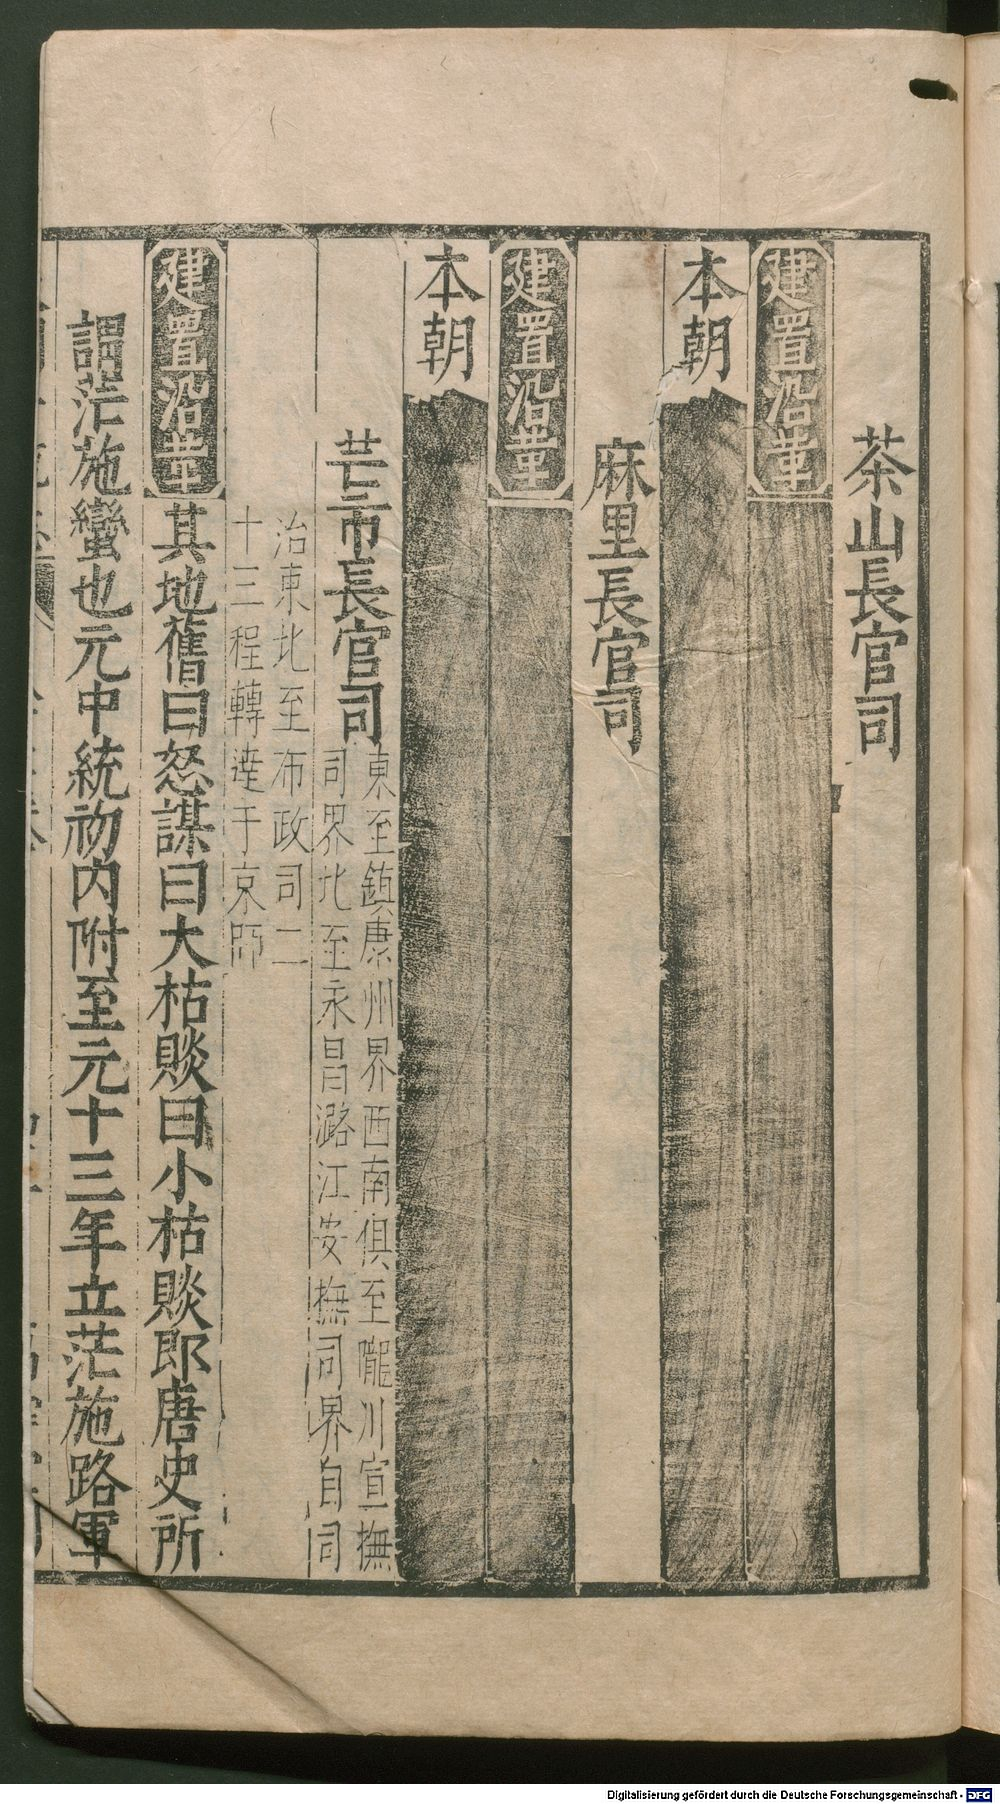 茶山長官司
建置沿革
本朝
麻里長官司
建置沿革
本朝
芒市長官司東至鎮康州界西南俱至隴川宣撫
司界北至永昌潞江安撫司界自司
治東北至布政司二
十三程轉達于京師
建置沿革其地舊曰怒謀曰大枯賧曰小枯賧即唐史所
謂茫施蠻也元中統初内附至元十三年立茫施路軍
Digitalisierung gefördert durch die Deutsche Forschungsgemeinschaft - DFG